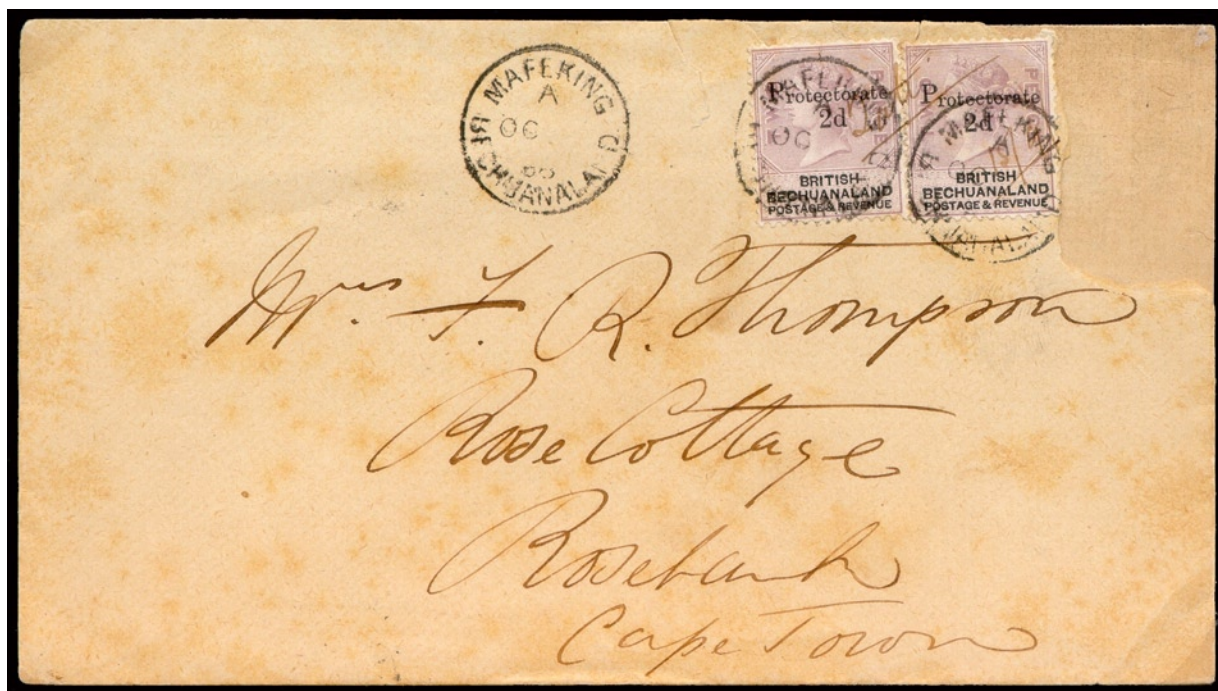 MAFEKING
A
OC
88
BECHUANALAND
Protectorate
2d
BRITISH
BECHUANALAND
POSTAGE & REVENUE
Protectorate
2d
BRITISH
BECHUANALAND
POSTAGE & REVENUE
MAFEKING
A
OC
MAFEKING
A
OC
Mrs. F. R. Thompson
Rose Cottage
Rosebank
Cape Town